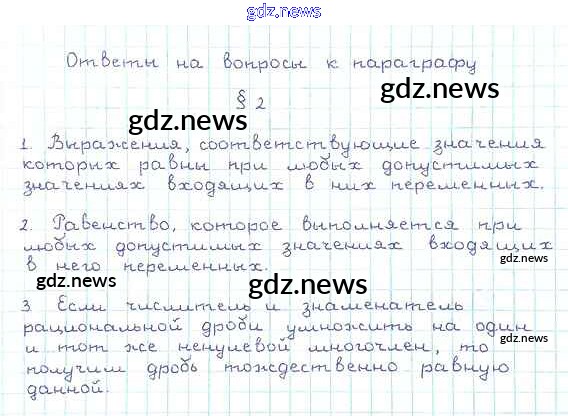 gdz.ru
Ответы на вопросы к параграфу
§ 2
gdz.ru
gdz.ru
1. Выражения, соответствующие значения
которых равны при любых допустимых
значениях входящих в них переменных.
2. Равенство, которое выполняется при
любых допустимых значениях входящих
в него переменных.
gdz.ru
gdz.ru
gdz.ru
3. Если числитель и знаменатель
рациональной дроби умножить на один
и тот же ненулевой многочлен, то
получим дробь тождественно равную
данной.
gdz.ru
gdz.ru
gdz.ru